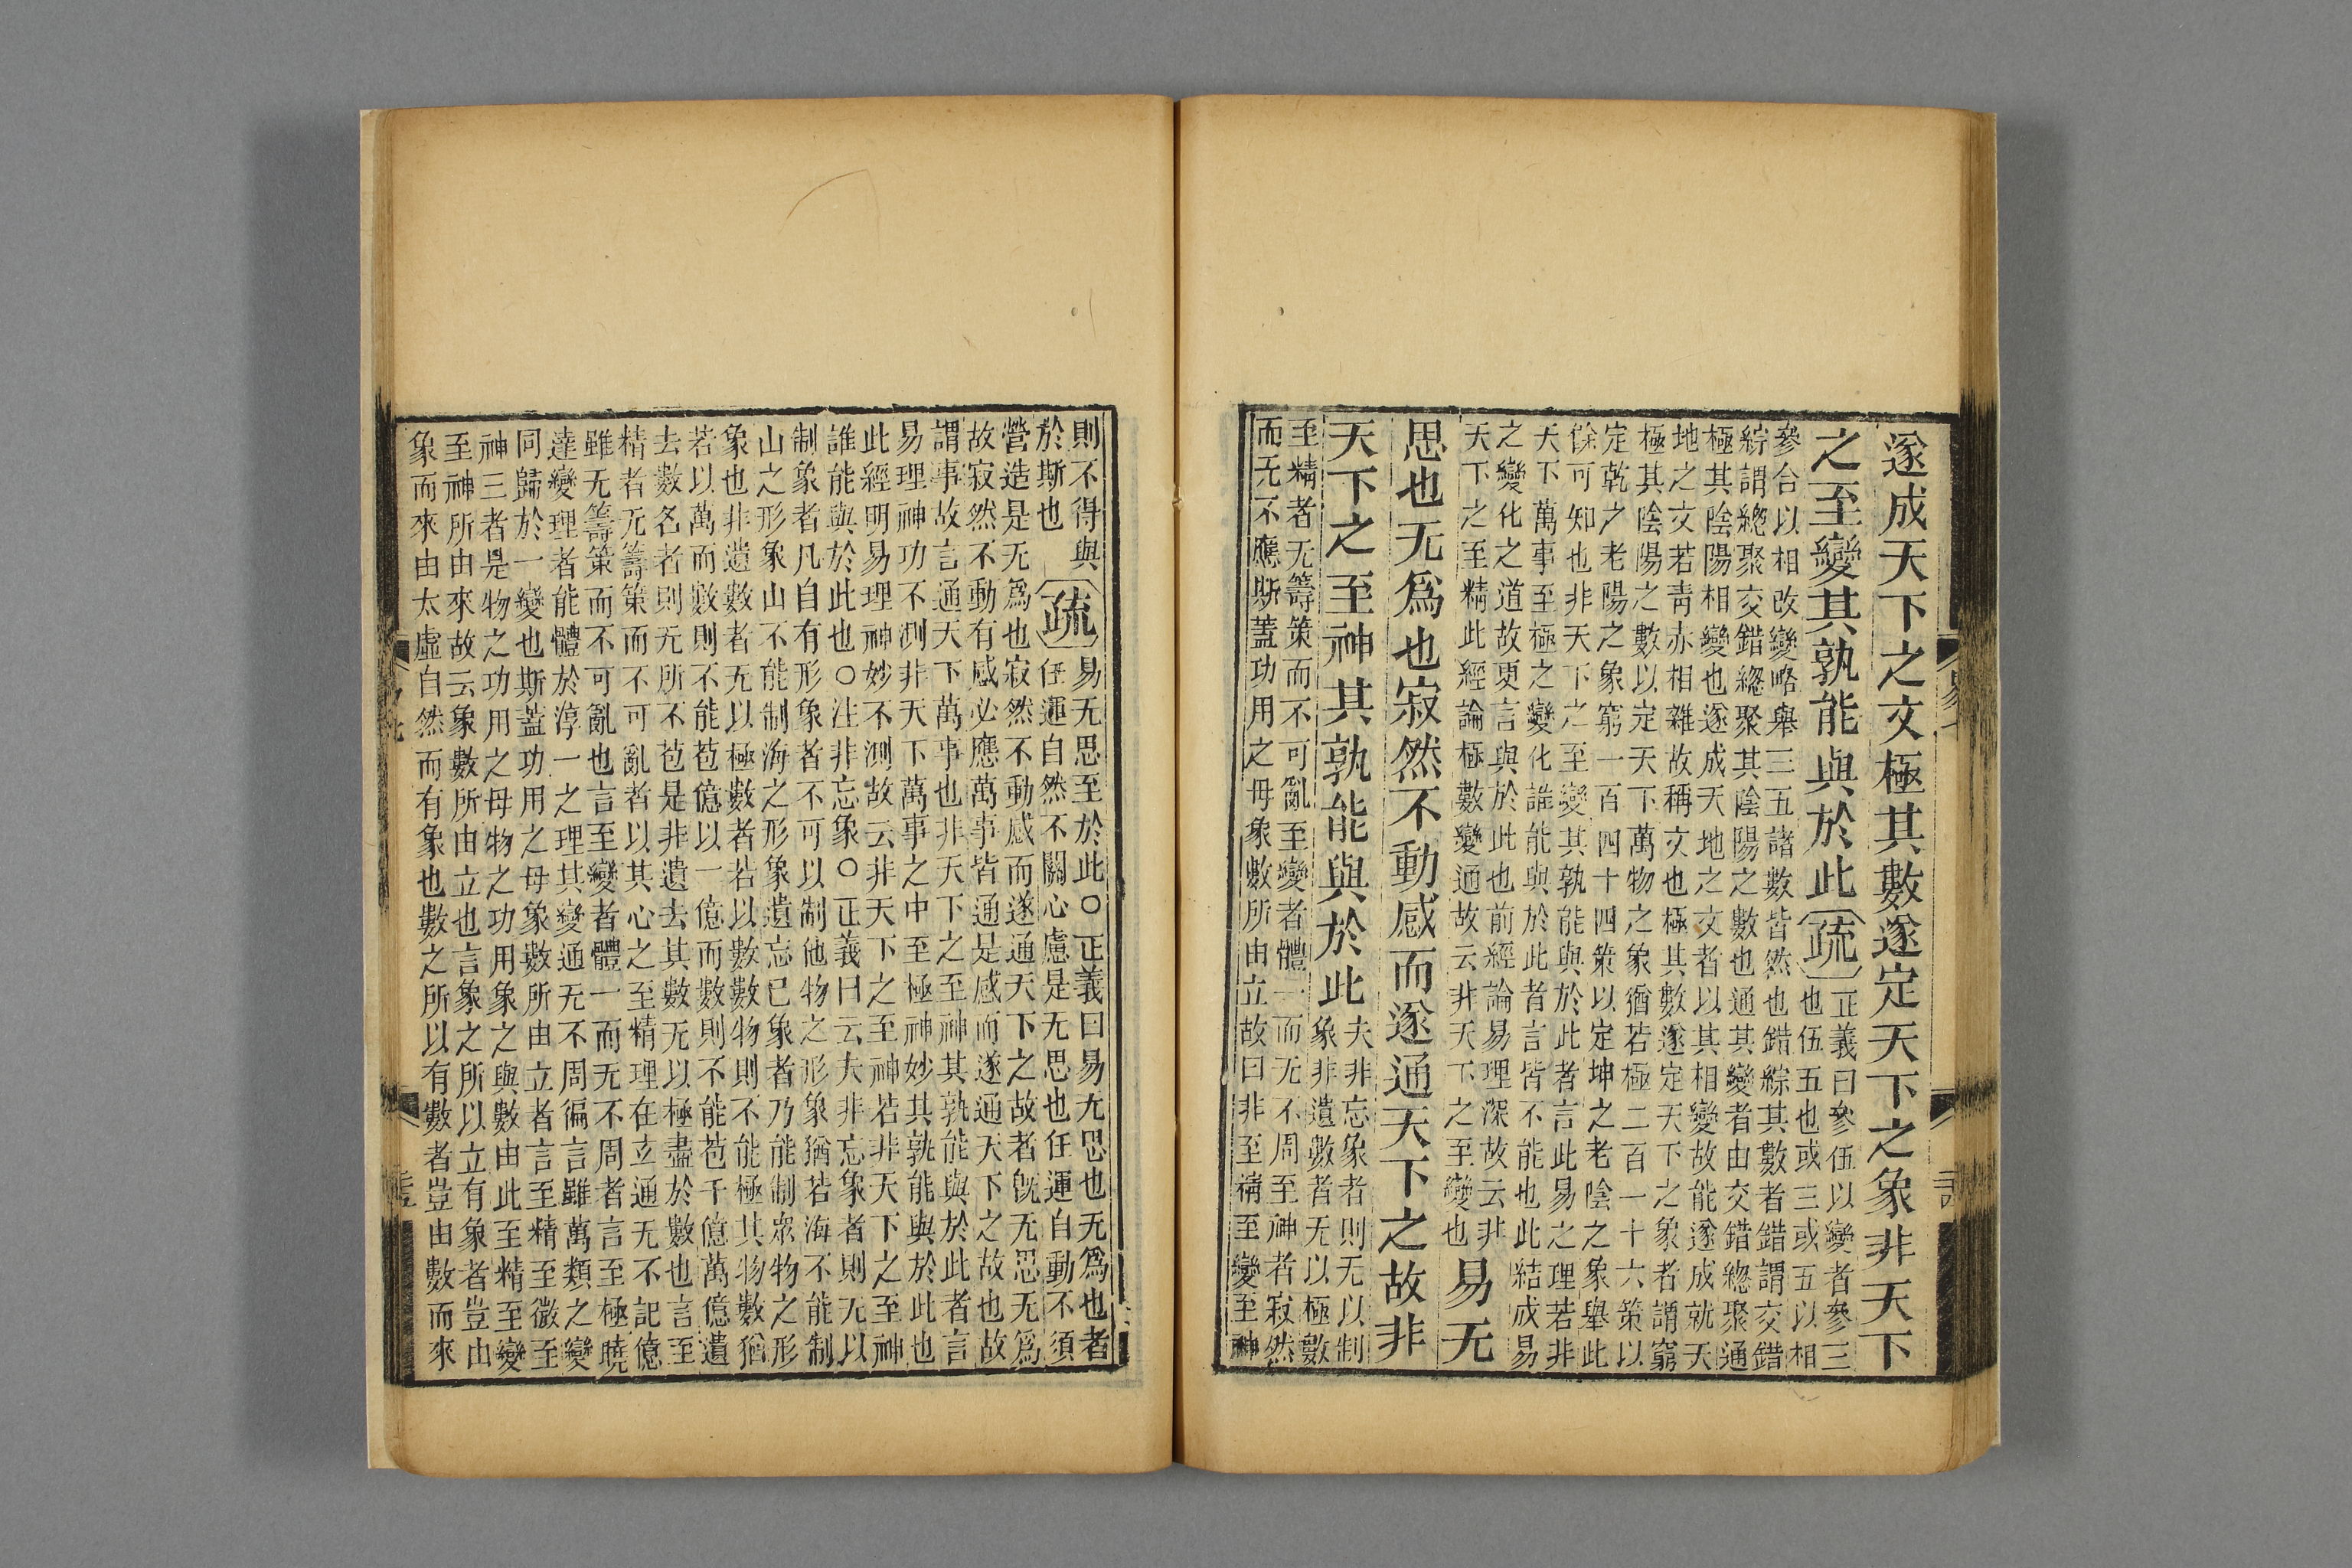 遂成天下之文極其數遂定天下之象非天下
之至變其孰能與於此疏
正義曰參伍以變者參三
也伍五也或三或五以相
參合以相改變略舉三五諸數皆然也錯綜其數者錯謂交錯
綜謂總聚交錯總聚其陰陽之數也通其變者由交錯總聚通
極其陰陽相變也遂成天地之文者以其相變故能遂成就天
地之文若青赤相雜故稱文也極其數遂定天下之象者謂窮
極其陰陽之數以定天下萬物之象猶若極二百一十六策以
定乾之老陽之象窮一百四十四策以定坤之老陰之象舉此
餘可知也非天下之至變其孰能與於此者言此易之理若非
天下萬事至極之變化誰能與於此者言皆不能也此結成易
之變化之道故更言與於此也前經論易理深故云非
天下之至精此經論極數變通故云非天下之至變也
易无
思也无爲也寂然不動感而遂通天下之故非
天下之至神其孰能與於此
夫非忘象者則无以制
象非遺數者无以極數
至精者无籌策而不可亂至變者體一而无不周至神者寂然
而无不應斯蓋功用之母象數所由立故曰非至精至變至神
則不得與
於斯也
疏
易无思至於此○正義曰易无思也无爲也者
任運自然不關心慮是无思也任運自動不須
營造是无爲也寂然不動感而遂通天下之故者旣无思无爲
故寂然不動有感必應萬事皆通是感而遂通天下之故也故
謂事故言通天下萬事也非天下之至神其孰能與於此者言
易理神功不測非天下萬事之中至極神妙其孰能與於此也
此經明易理神妙不測故云非天下之至神若非天下之至神
誰能與於此也○注非忘象○正義曰云夫非忘象者則无以
制象者凡自有形象者不可以制他物之形象猶若海不能制
山之形象山不能制海之形象遺忘已象者乃能制衆物之形
象也非遺數者无以極數者若以數數物則不能極其物數猶
若以萬而數則不能苞億以一億而數則不能苞千億萬億遺
去數名者則无所不苞是非遺去其數无以極盡於數也言至
精者无籌策而不可亂者以其心之至精理在立通无不記億
雖无籌策而不可亂也言至變者體一而无不周者言至極曉
達變理者能體於淳一之理其變通无不周徧言雖萬類之變
同歸於一變也斯蓋功用之母象數所由立者言至精至微至
神三者是物之功用之母物之功用象之與數由此至精至變
至神所由來故云象數所由立也言象之所以立有象者豈由
象而來由太虛自然而有象也數之所以有數者豈由數而來